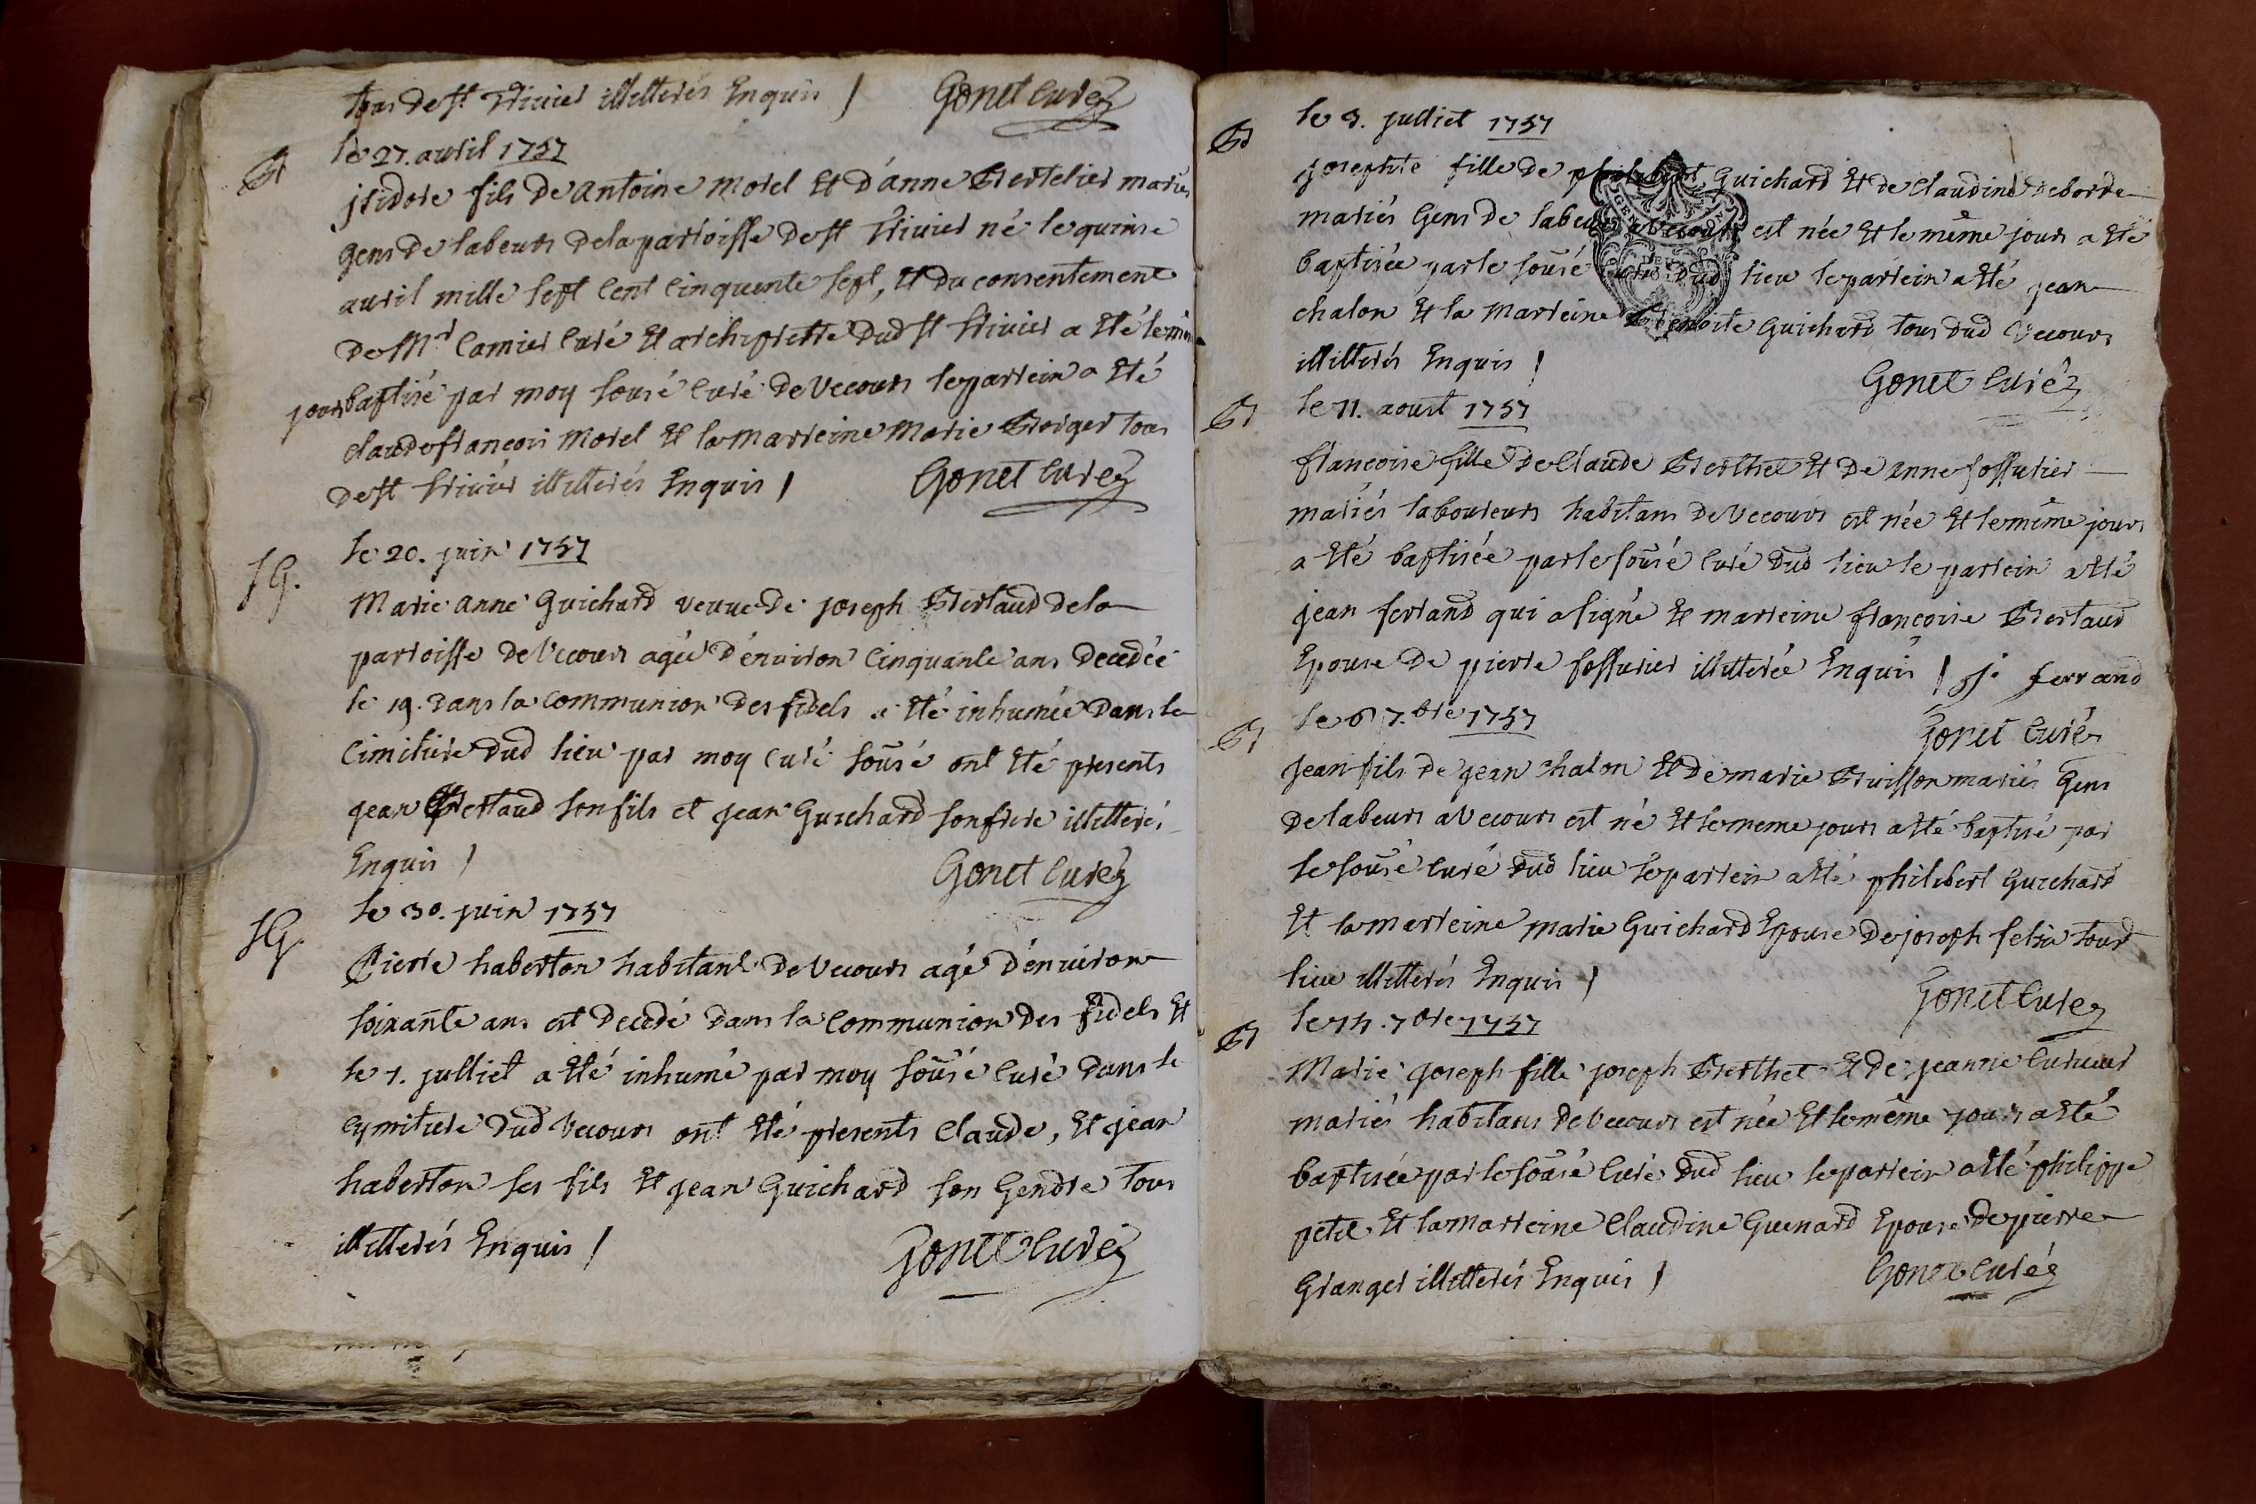 tous de st trivier illitterés Enquis / Gonet Curé
Bt
le 27. avril 1757
jsidore fils de antoine morel Et d'anne Bertelier mariés
gens de labeurs de la parroisse de st trivier né le quinse
avril mille sept cent cinquante sept, Et du consentement
de Mr Camier curé Et archiprettre dud st trivier a Eté le mm
jours baptisé par moy sousé curé de Vecours le parrein a Eté
claude françois morel Et la marreine marie Broiger tous
de st trivier illitterés Enquis / Gonet Curé
SG.
le 20. juin 1757
Marie anne Guichard veuve de joseph Bertaud de la
parroisse de Vecours agée d'environ cinquante ans decedée
le 19. dans la communion des fidels a Eté inhumée dans le
cimitiere dud lieu par moy curé sousé ont Eté presents
jean Bertaud son fils et jean Guichard son frere illitterés
Enquis / Gonet Curé
SG.
le 30. juin 1757
Pierre haberton habitant de Vecours agé d'environ
soixante ans est decedé dans la communion des fidels Et
le 1. julliet a Eté inhumé par moy sousé curé dans le
cymitiere dud Vecours ont Eté presents Claude, Et jean
haberton ses fils Et jean Guichard son Gendre tous
illitterés Enquis / Gonet Curé
Bt
le 3. julliet 1757
josephte fille de philibert Guichard Et de Claudine deborde
mariés Gens de labeurs a Vecours est née Et le même jours a Eté
baptisée par le sousé curé dud lieu le parrein a Eté jean
chalon Et la marreine Benoite Guichard tous dud Vecours
illitterés Enquis /
Gonet Curé
Bt
le 11. aoust 1757
françoise fille de Claude Berthet Et de anne fossurier
mariés laboureurs habitans de Vecours est née Et le même jours
a Eté baptisée par le sousé curé dud lieu le parrein a Eté
jean ferrand qui a signé Et marreine françoise Bertaud
Epouse de pierre fossurier illitterée Enquis / j. ferrand
Gonet Curé
Bt
le 6 7.bre 1757
jean fils de jean chalon Et de marie Buisson mariés Gens
de labeurs a Vecours est né Et le meme jours a Eté baptisé par
le sousé curé dud lieu le parrein a Eté philibert Guichard
Et la marreine marie Guichard Epouse de joseph
lieu illitterés Enquis /
Gonet Curé
Bt
le 14. 7bre 1757
Marie joseph fille joseph Berthet Et de jeanne
mariés habitans de Vecours est née Et le même jours a Eté
baptisée par le sousé curé dud lieu le parrein a Eté philippe
petit Et la marreine Claudine Guenard Epouse de pierre
Granger illitterés Enquis / Gonet Curé